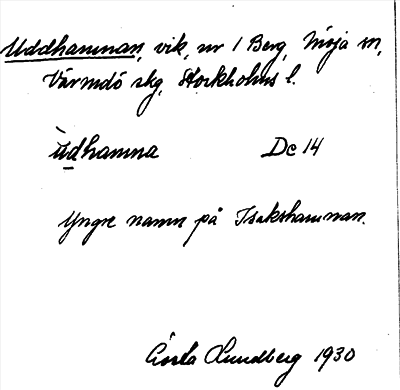 Uddhamnan, vik, nr 1 Berg, Möja sn,
Värmdö skg, Stockholms l.
ùdhamna Dc 14
Yngre namn på Isakshamnan.
Gösta Lundberg 1930